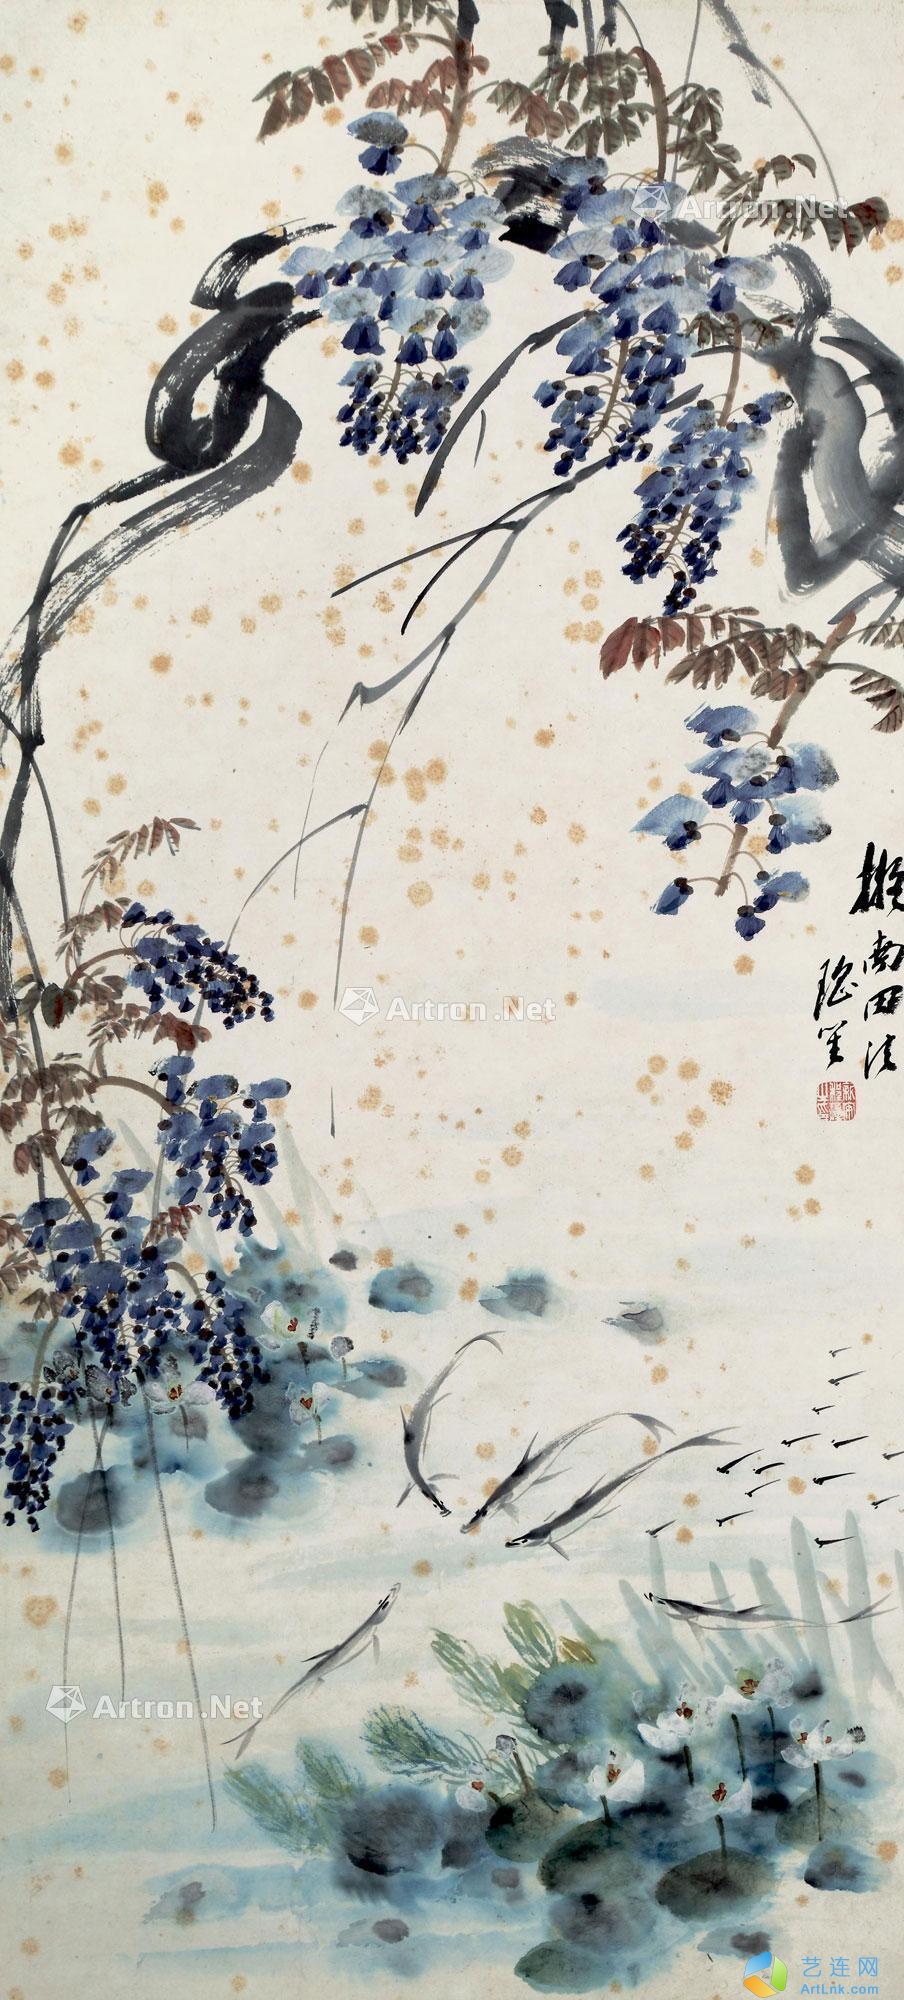 Artron.Net
擬南田法
瑤笙
Artron.Net
Artron.Net
艺连网
ArtLnk.com